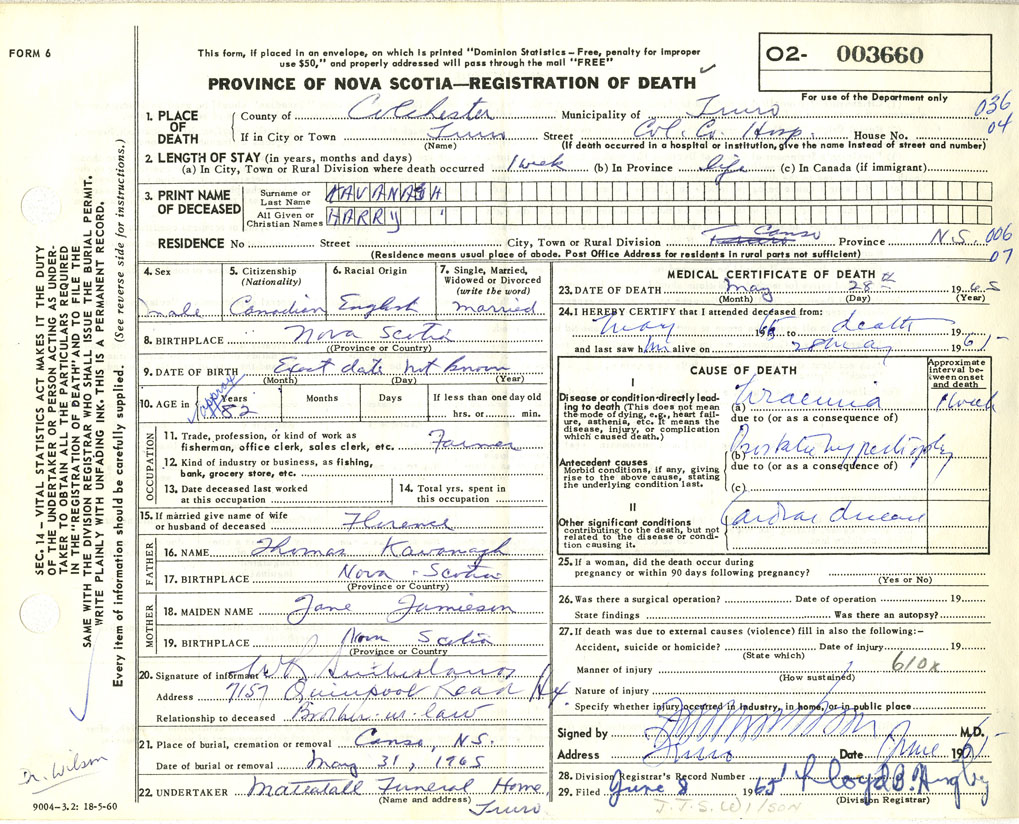 FORM 6
This form, if placed in an envelope, on which is printed "Dominion Statistics – Free, penalty for improper
use $50," and properly addressed will pass through the mail "FREE"
02- 003660
PROVINCE OF NOVA SCOTIA—REGISTRATION OF DEATH ✓
For use of the Department only
1. PLACE OF DEATH { County of Colchester Municipality of Truro 036
If in City or Town Truro Street Col. Co. Hosp. House No. 04
(Name) (If death occurred in a hospital or institution, give the name instead of street and number)
2. LENGTH OF STAY (in years, months and days)
(a) In City, Town or Rural Division where death occurred 1 week (b) In Province life (c) In Canada (if immigrant)
3. PRINT NAME OF DECEASED
Surname or Last Name KAVANAGH
All Given or Christian Names HARRY
RESIDENCE No Street City, Town or Rural Division Canso Province N.S. 006
(Residence means usual place of abode. Post Office Address for residents in rural parts not sufficient) 07
4. Sex male
5. Citizenship (Nationality) Canadian
6. Racial Origin English
7. Single, Married, Widowed or Divorced (write the word) married
8. BIRTHPLACE Nova Scotia
(Province or Country)
9. DATE OF BIRTH Exact date not known
(Month) (Day) (Year)
10. AGE in { Years approx 82 Months Days If less than one day old
hrs. or min.
OCCUPATION
11. Trade, profession, or kind of work as
fisherman, office clerk, sales clerk, etc. Farmer
12. Kind of industry or business, as fishing,
bank, grocery store, etc.
13. Date deceased last worked at this occupation
14. Total yrs. spent in this occupation
15. If married give name of wife
or husband of deceased Florence
FATHER
16. NAME Thomas Kavanagh
17. BIRTHPLACE Nova Scotia
(Province or Country)
MOTHER
18. MAIDEN NAME Jane Jamieson
19. BIRTHPLACE Nova Scotia
(Province or Country)
20. Signature of informant
Address 7157 Quinpool Road Hx
Relationship to deceased Brother-in-law
21. Place of burial, cremation or removal Canso, N.S.
Date of burial or removal May 31, 1965
22. UNDERTAKER Mattatall Funeral Home
(Name and address) Truro
MEDICAL CERTIFICATE OF DEATH
23. DATE OF DEATH May 28th 1965
(Month) (Day) (Year)
24. I HEREBY CERTIFY that I attended deceased from:
May 19 to death 19
and last saw him alive on 28 May 196
CAUSE OF DEATH
Approximate interval between onset and death
I
Disease or condition directly leading to death (This does not mean the mode of dying, e.g., heart failure, asthenia, etc. It means the disease, injury, or complication which caused death.)
(a) Uraemia 1 week
due to (or as a consequence of)
Antecedent causes
Morbid conditions, if any, giving rise to the above cause, stating the underlying condition last.
(b) Prostatic hypertrophy
due to (or as a consequence of)
(c)
II
Other significant conditions
contributing to the death, but not related to the disease or condition causing it.
Cardiac disease
25. If a woman, did the death occur during
pregnancy or within 90 days following pregnancy?
(Yes or No)
26. Was there a surgical operation? Date of operation 19
State findings Was there an autopsy?
27. If death was due to external causes (violence) fill in also the following:–
Accident, suicide or homicide? Date of injury 19
(State which)
Manner of injury 610x
(How sustained)
Nature of injury
Specify whether injury occurred in industry, in home, or in public place
Signed by M.D.
Address Truro Date June 196
28. Division Registrar's Record Number
29. Filed June 8 1965 Lloyd B.
(Division Registrar)
J.T.S. Wilson
SEC. 14 – VITAL STATISTICS ACT MAKES IT THE DUTY
OF THE UNDERTAKER OR PERSON ACTING AS UNDER-
TAKER TO OBTAIN ALL THE PARTICULARS REQUIRED
IN THE "REGISTRATION OF DEATH" AND TO FILE THE
SAME WITH THE DIVISION REGISTRAR WHO SHALL ISSUE THE BURIAL PERMIT.
WRITE PLAINLY WITH UNFADING INK. THIS IS A PERMANENT RECORD.
Every item of information should be carefully supplied. (See reverse side for instructions.)
Dr. Wilson
9004–3.2: 18-5-60